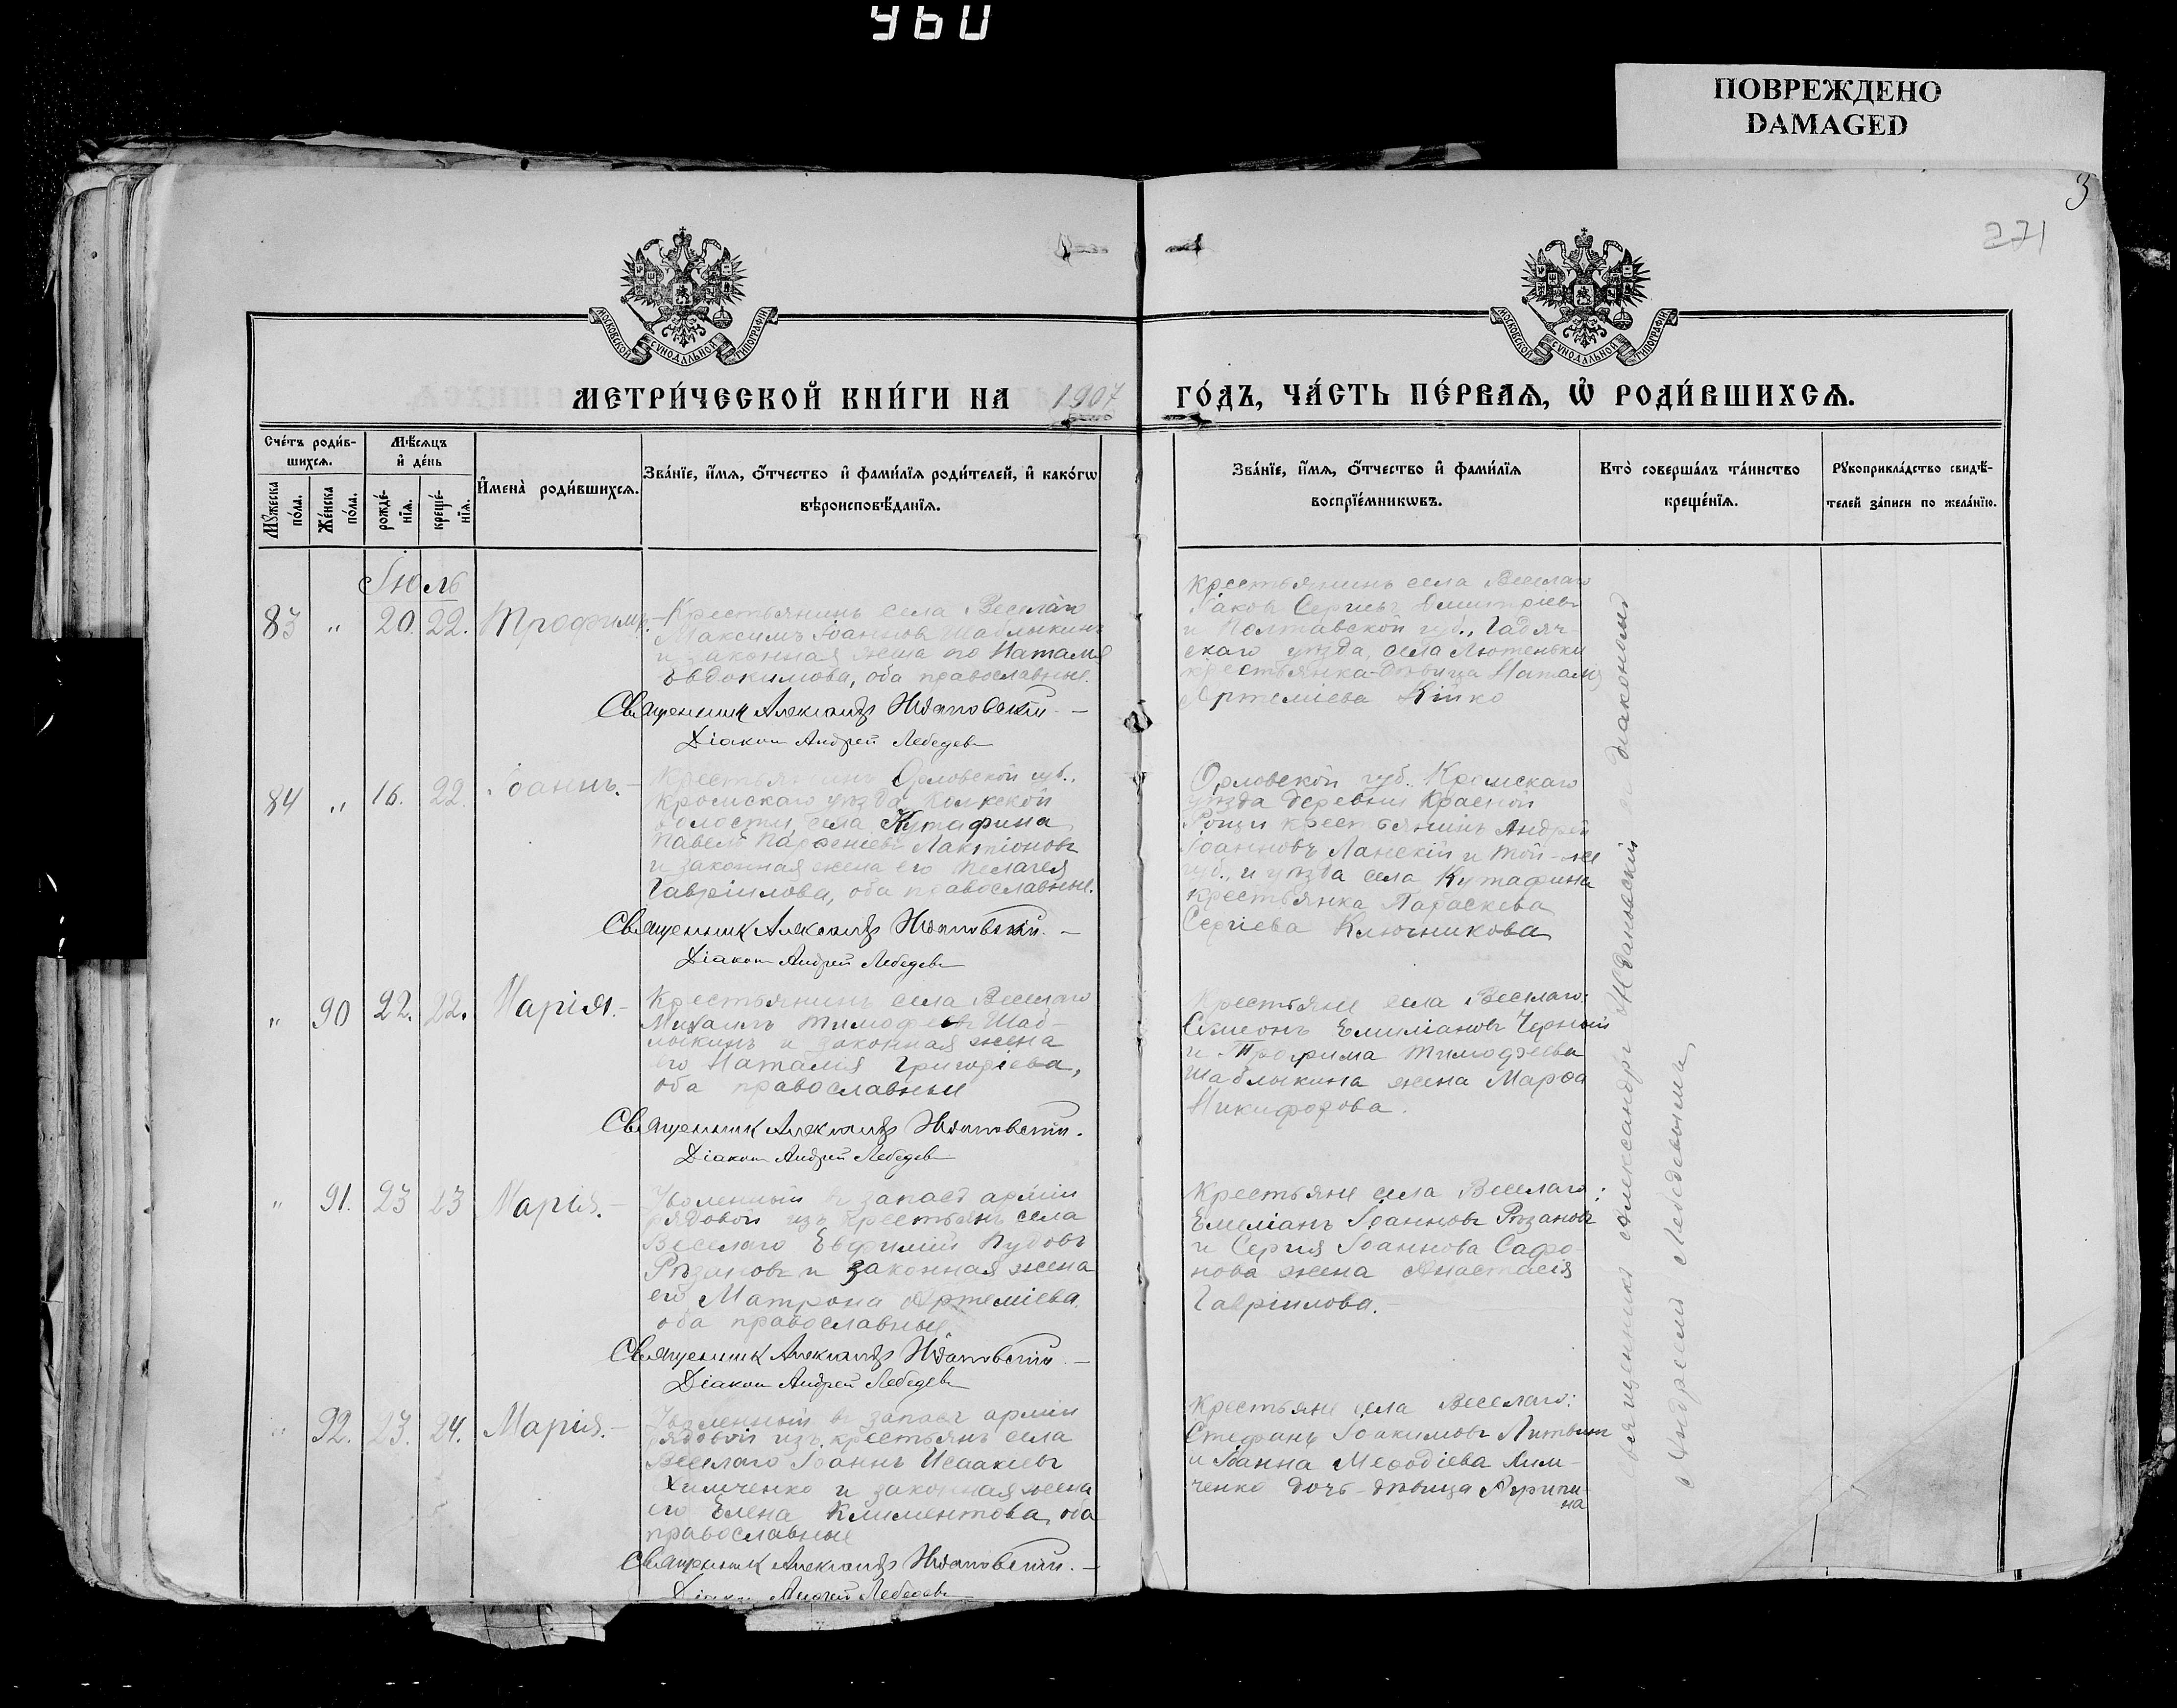 960
ПОВРЕЖДЕНО
DAMAGED
3
271
МОСКОВСКОЙ СѴНОДАЛЬНОЙ ТИПОГРАФІИ
МОСКОВСКОЙ СѴНОДАЛЬНОЙ ТИПОГРАФІИ
МЕТРИ́ЧЕСКОЙ КНИ́ГИ НА 1907 ГО́ДЪ, ЧА́СТЬ ПЕ́РВАѦ, Ѡ҆ РОДИ́ВШИХСѦ.
Сче́тъ роди́в-
шихсѧ.
Мѣ́сѧцъ
и҆ де́нь
Мꙋ́жеска
по́ла.
Же́нска
по́ла.
рожде́-
нїѧ.
креще́-
нїѧ.
И҆мена̀ роди́вшихсѧ.
Зва́нїе, и҆́мѧ, ѻ҆́тчество и҆ фами́лїѧ роди́телей, и҆ како́гѡ
вѣроисповѣ́данїѧ.
Зва́нїе, и҆́мѧ, ѻ҆́тчество и҆ фами́лїѧ
воспрїе́мникѡвъ.
Кто̀ соверша́лъ та́инство
креще́нїѧ.
Рꙋкоприкла́дство свидѣ́-
телей за́писи по жела́нїю.
Іюль
83 " 20. 22. Трофимъ.
Крестьянинъ села Веселаго
Максимъ Іоанновъ Шаблыкинъ
и законная жена его Наталія
Евдокимова, оба православные.
Священникъ Александръ Ждановскій.
Діаконъ Андрей Лебедевъ
Крестьянинъ села Веселаго
Іаковъ Сергіевъ Дмитріевъ
и Полтавской губ., Гадяч-
скаго уѣзда, села Лютеньки
крестьянка-дѣвица Наталія
Артеміева Кійко
84 " 16. 22. Іоаннъ.
Крестьянинъ Орловской губ.,
Кромскаго уѣзда,
волости, села Кутафина
Павелъ Парфеніевъ Лактіоновъ
и законная жена его Пелагея
Гавріилова, оба православные.
Священникъ Александръ Ждановскій.
Діаконъ Андрей Лебедевъ
Орловской губ. Кромскаго
уѣзда деревни Красной
Рощи крестьянинъ Андрей
Іоанновъ Ланскій и той-же
губ., и уѣзда села Кутафина
крестьянка Параскева
Сергіева Ключникова
" 90 22. 22. Марія.
Крестьянинъ села Веселаго
Михаилъ Тимофеевъ Шаб-
лыкинъ и законная жена
его Наталія Григоріева,
оба православные
Священникъ Александръ Ждановскій.
Діаконъ Андрей Лебедевъ
Крестьяне села Веселаго:
Симеонъ Емиліановъ Черный
и Трофима Тимофеева
Шаблыкина жена Марѳа
Никифорова.
" 91. 23 23 Марія.
Уволенный въ запасъ арміи
рядовой изъ крестьянъ села
Веселаго Евфимій Пудовъ
Рѣзановъ и законная жена
его Матрона Артеміева
оба православные
Священникъ Александръ Ждановскій.
Діаконъ Андрей Лебедевъ
Крестьяне села Веселаго:
Емеліанъ Іоанновъ Рѣзановъ
и Сергія Іоаннова Сафо-
нова жена Анастасія
Гавріилова.
" 92. 23. 24. Марія.
Уволенный въ запасъ арміи
рядовой изъ крестьянъ села
Веселаго Іоаннъ Исаакіевъ
Химченко и законная жена
его Елена Климентова, оба
православные
Священникъ Александръ Ждановскій.
Діаконъ Андрей Лебедевъ
Крестьяне села Веселаго:
Стефанъ Іоакимовъ Литвинъ
и Іоанна Меѳодіева Хим-
ченко дочь-дѣвица Агрипи-
на
Священникъ Александръ Ждановскій и діакономъ
Андреемъ Лебедевыма